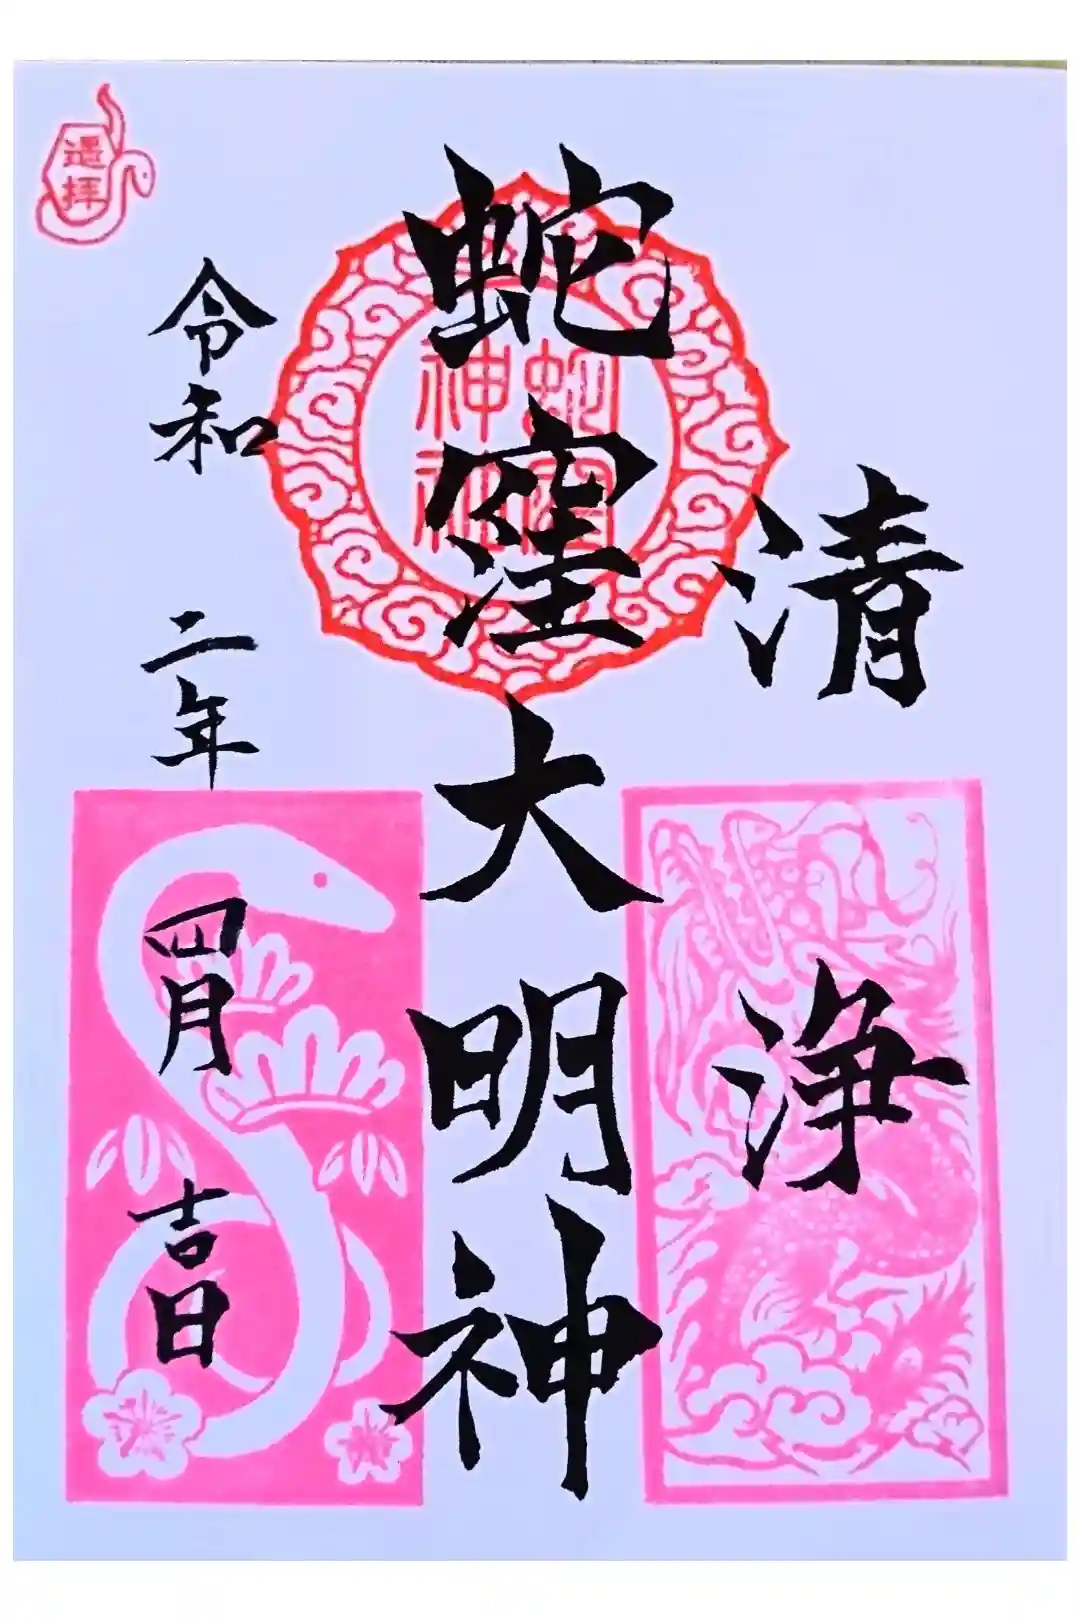 清浄
蛇窪大明神
蛇窪
神社
令和二年四月吉日
遥拝